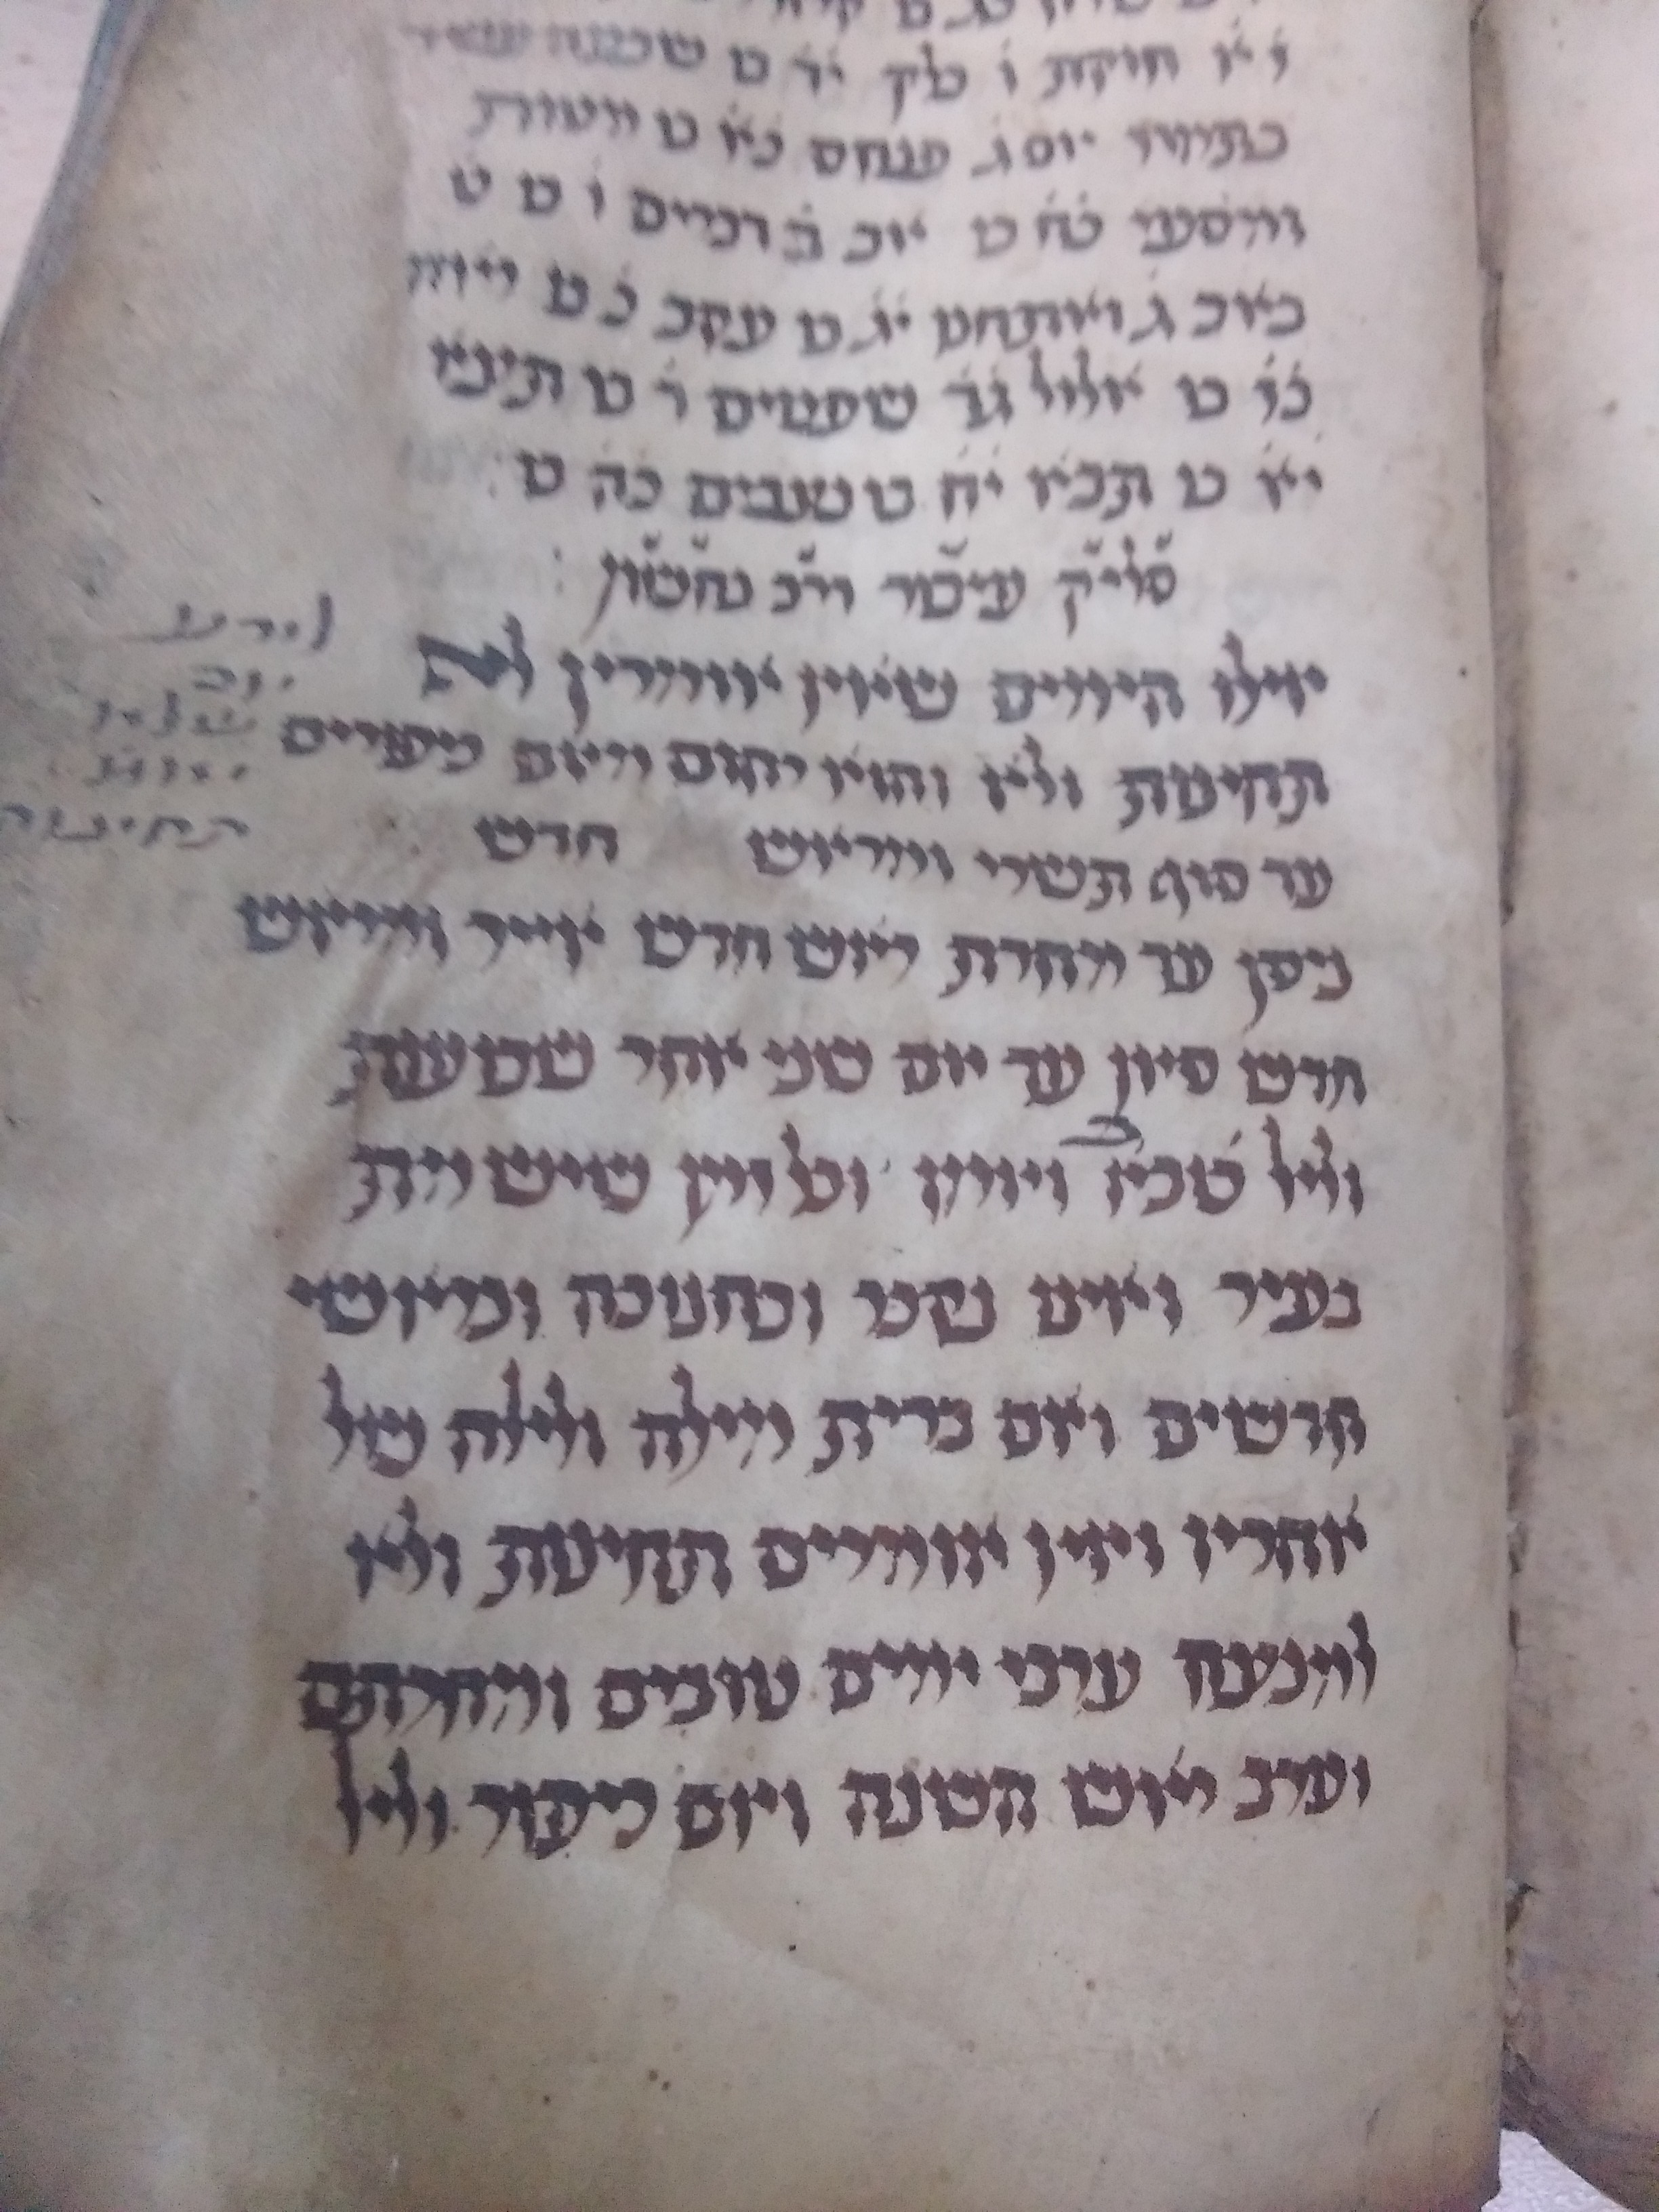 ו א חוקת ו בלק יד ט שבעה עשר
בתמוז יום ג פנחס כא ט מטות
ומסעי כח ט אב ב דברים ו ט ט
באב ג ואתחנן יג ט עקב כ ט ראה
כז ט אלול גד שפטים ד ט תצא
יא ט תבא יח ט נצבים כה ט
סליק עיבור רנב בחשון :
אילו הימים שאין אומרין להם
תחינות ולא והוא רחום מיום כיפורים
עד סוף תשרי ומראש חדש
ניסן עד מחרת ראש חדש אייר ומראש
חדש סיון עד יום שני אחר שבועות
וליל ט באב ויומו וכל זמן שיש מת
בעיר ואינו נקבר ובחנוכה ובראשי
חדשים ויום ברית מילה ולילה של
אחריו ואין אומרים תחינות ולא
למנצח ערבי ימים טובים ומחרתם
וערב ראש השנה ויום כיפור וליל